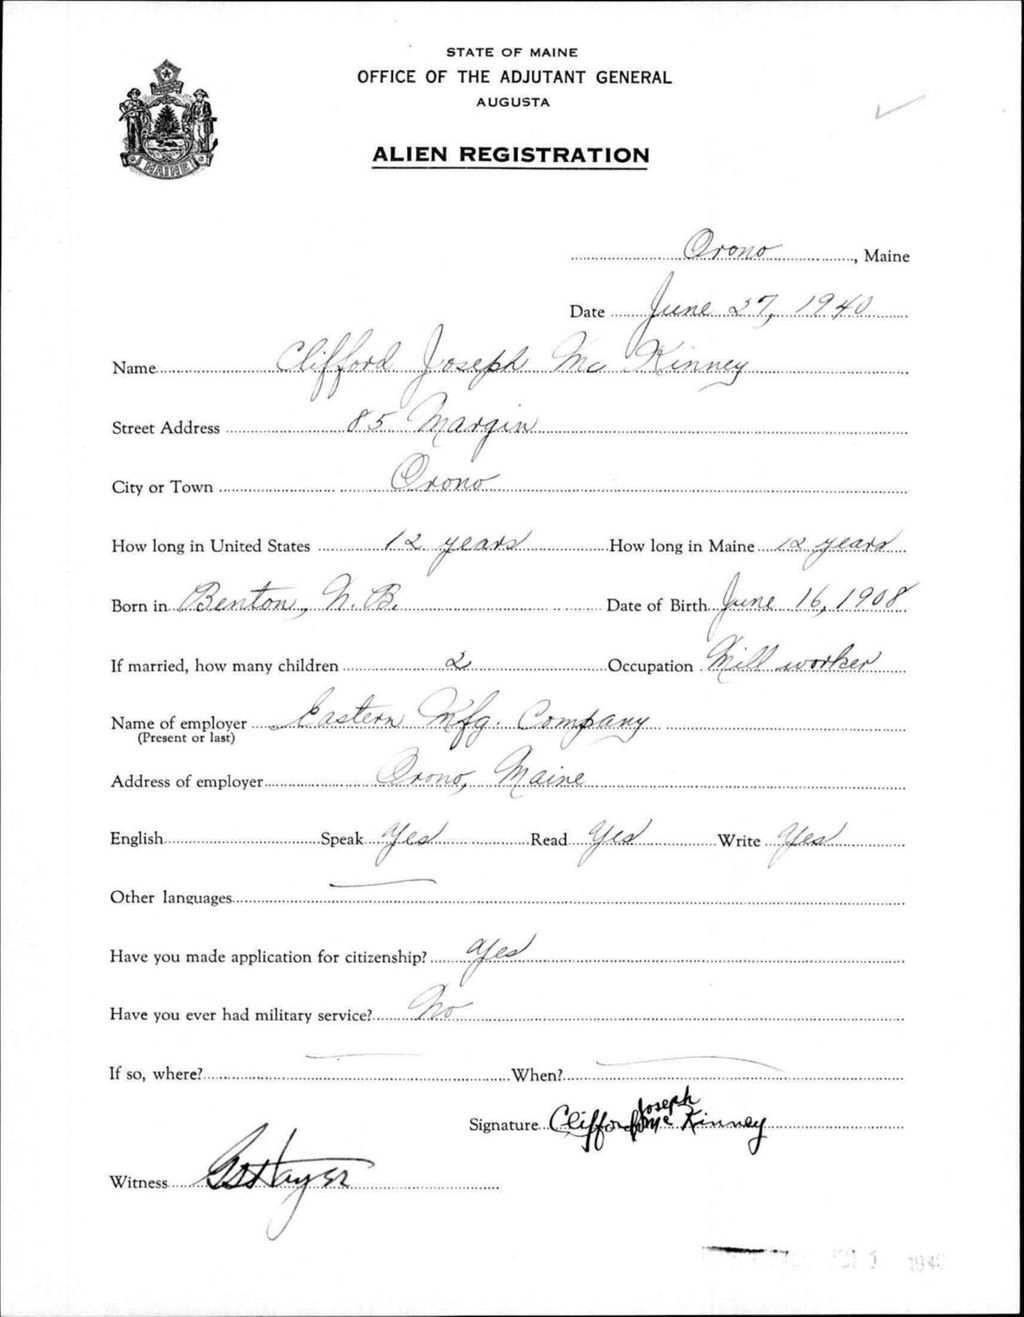 STATE OF MAINE
OFFICE OF THE ADJUTANT GENERAL
AUGUSTA
ALIEN REGISTRATION
MAINE
Orono, Maine
Date June 27, 1940
Name Clifford Joseph Mc Kinney
Street Address 85 Margin
City or Town Orono
How long in United States 12 years How long in Maine 12 years
Born in Benton, N.B. Date of Birth June 16, 1908
If married, how many children 2 Occupation Mill worker
Name of employer Eastern Mfg. Company
(Present or last)
Address of employer Orono, Maine
English Speak Yes Read Yes Write Yes
Other languages
Have you made application for citizenship? Yes
Have you ever had military service? No
If so, where? When?
Joseph
Signature Clifford Mc Kinney
Witness
1940